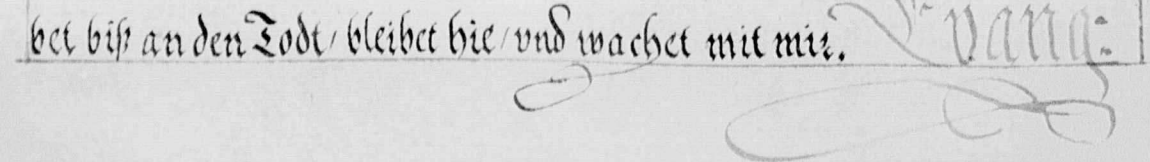 bet biß an den Todt/ bleibet hie/ vnd wachet mit mir. Evang: